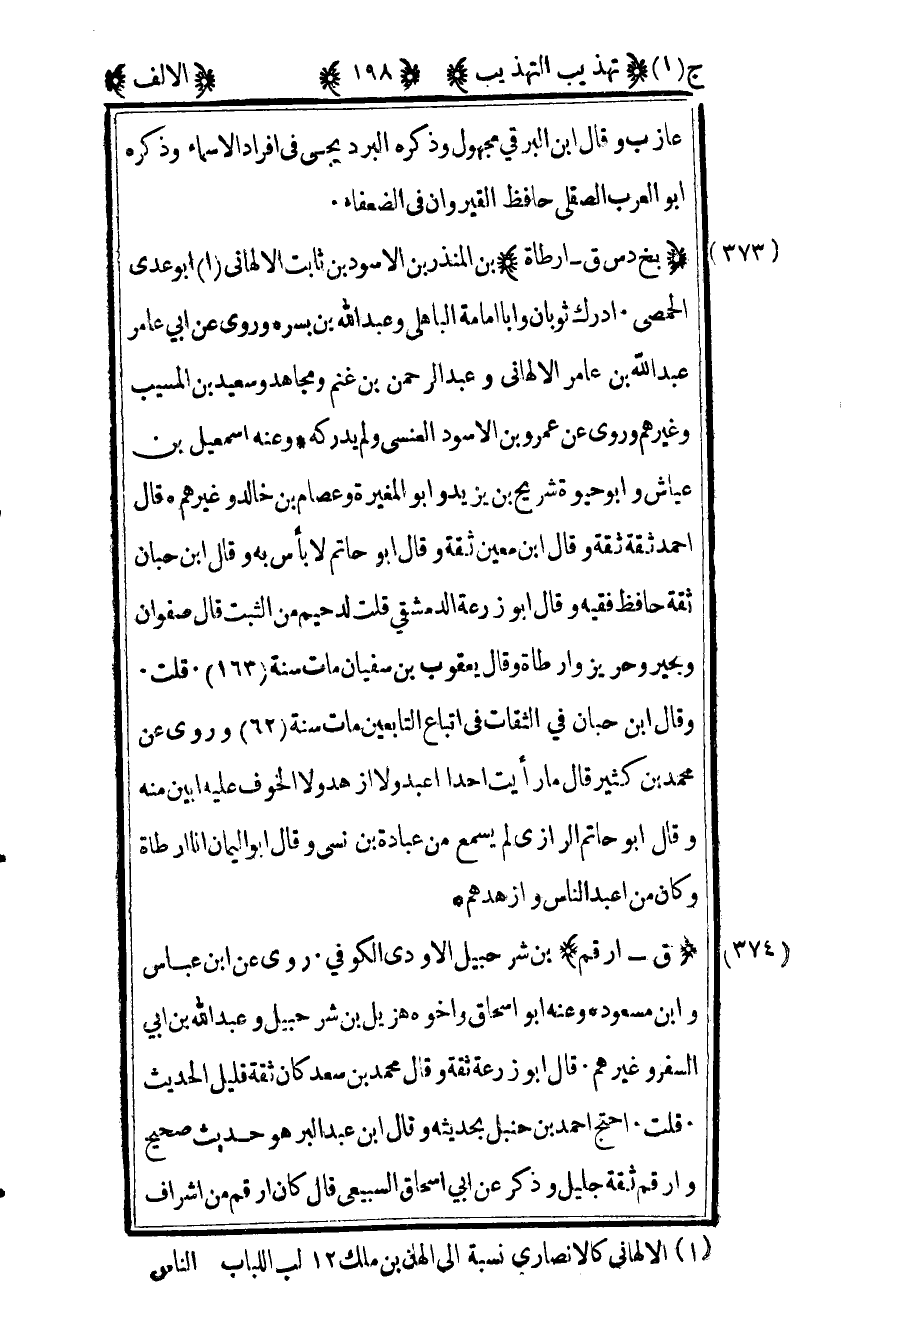 ج(١) ﴿ تهذيب التهذيب ﴾ ﴿ ١٩٨ ﴾ ﴿ الالف ﴾
عازب وقال ابن البرقي مجهول وذكره البرديجى فى افراد الاسماء وذكره
ابو العرب الصقلى حافظ القيروان فى الضعفاء ٠
(٣٧٣) ﴿ بخ دس ق ـ ارطاة ﴾ بن المنذر بن الاسود بن ثابت الالهانى (١) ابوعدى
الحمصى ٠ ادرك ثوبان وابا امامة الباهلى وعبدالله بن بسر ٥ وروى عن ابي عامر
عبدالله بن عامر الالهانى و عبدالرحمن بن غنم ومجاهد وسعيد بن المسيب
وغيرهم وروى عن عمرو بن الاسود العنسى ولم يدركه * وعنه اسمعيل بن
عياش و ابوحيوة شريح بن يزيد و ابو المغيرة وعصام بن خالد وغيرهم ٥ قال
احمد ثقة ثقة و قال ابن معين ثقة و قال ابو حاتم لا بأس به و قال ابن حبان
ثقة حافظ فقيه و قال ابو زرعة الدمشقي قلت لدحيم من الثبت قال صفوان
وبحير وحريز وارطاة وقال يعقوب بن سفيان مات سنة (١٦٣) ٠ قلت ٠
وقال ابن حبان في الثقات فى اتباع التابعين مات سنة (٦٢) و روى عن
محمد بن كثير قال مارأيت احدا اعبد ولا ازهد ولا الخوف عليه ابين منه
و قال ابو حاتم الرازى لم يسمع من عبادة بن نسى و قال ابواليمان انا ارطاة
وكان من اعبد الناس و ازهدهم *
(٣٧٤) ﴿ ق ـ ارقم ﴾ بن شرحبيل الاودى الكوفي ٠ روى عن ابن عباس
و ابن مسعود * وعنه ابو اسحاق واخوه هزيل بن شرحبيل و عبدالله بن ابي
السفر و غيرهم ٠ قال ابو زرعة ثقة و قال محمد بن سعد كان ثقة قليل الحديث
٠ قلت ٠ احتج احمد بن حنبل بحديثه و قال ابن عبدالبر هو حديث صحيح
و ارقم ثقة جليل و ذكر عن ابي اسحاق السبيعى قال كان ارقم من اشراف
(١) الالهاني كالانصاري نسبة الى الهان بن ملك ١٢ لب اللباب الناس